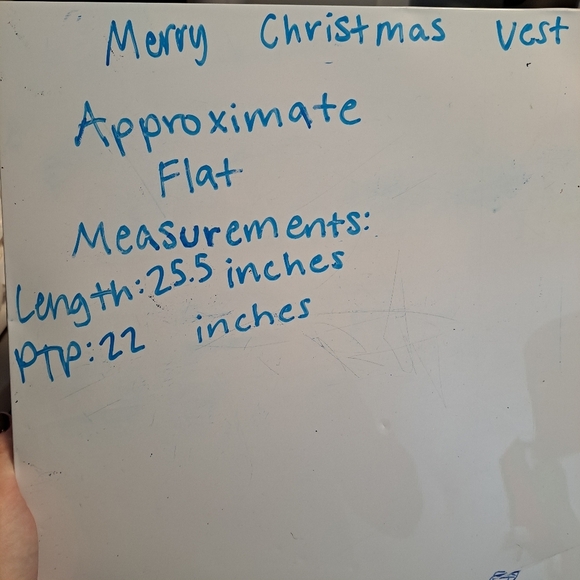 Merry Christmas Vest
Approximate
Flat
Measurements:
Length: 25.5 inches
PTP: 22 inches